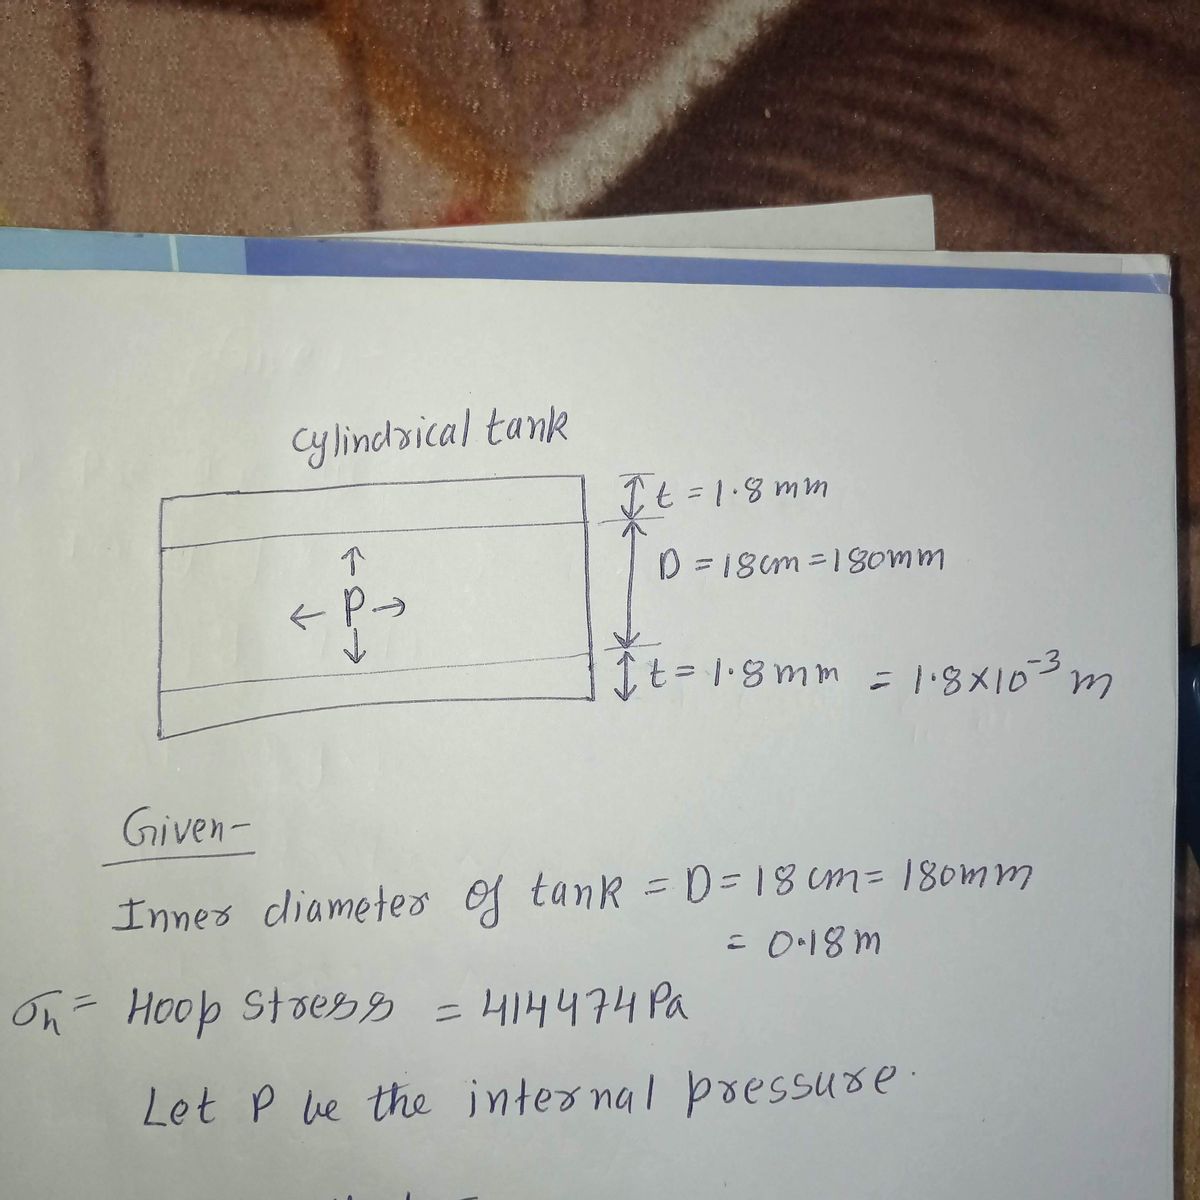 Cylindrical tank
t = 1.8 mm
D = 18cm = 180mm
P
t = 1.8 mm = 1.8×10⁻³ m
Given-
Inner diameter of tank = D = 18 cm = 180mm
= 0.18 m
σh = Hoop stress = 414474 Pa
Let P be the internal pressure.